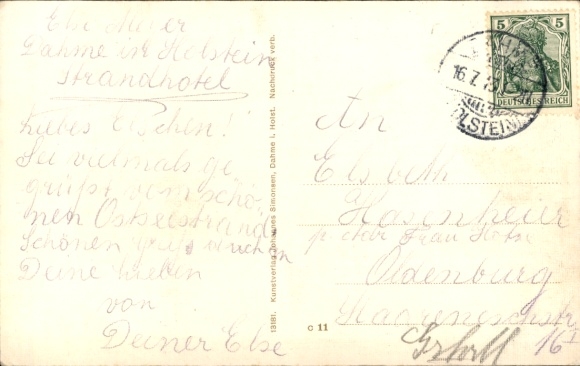 Dahme in Holstein
Strandhotel
Liebes Elschen!
Sei vielmals ge
grüßt vom schö-
nen Ostseestrand
Schönen Gruß auch an
Deine lieben
von
Deiner Else
13181. Kunstverlag Johannes Simonsen, Dahme i. Holst. Nachdruck verb.
C 11
5
DEUTSCHES REICH
16.7.13
HOLSTEIN
An
Elsbeth
Hasenheier
Frau
Oldenburg
16 I